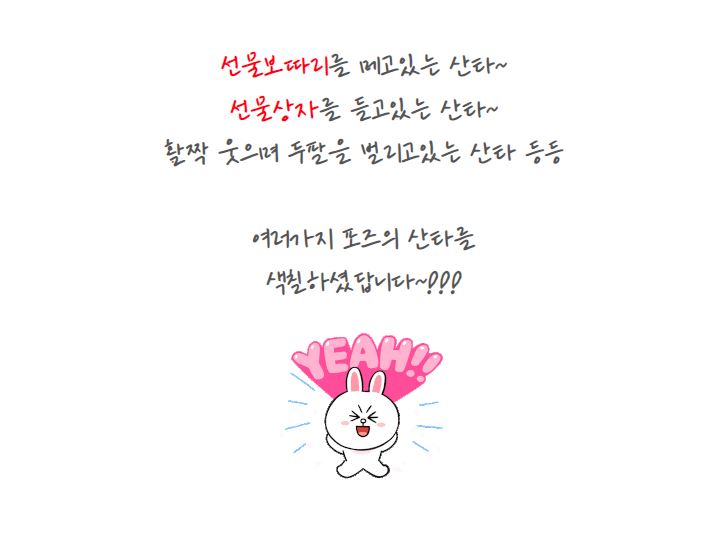 선물보따리를 메고있는 산타~
선물상자를 들고있는 산타~
활짝 웃으며 두팔을 벌리고있는 산타 등등
여러가지 포즈의 산타를
색칠하셨답니다~!!!
YEAH!!